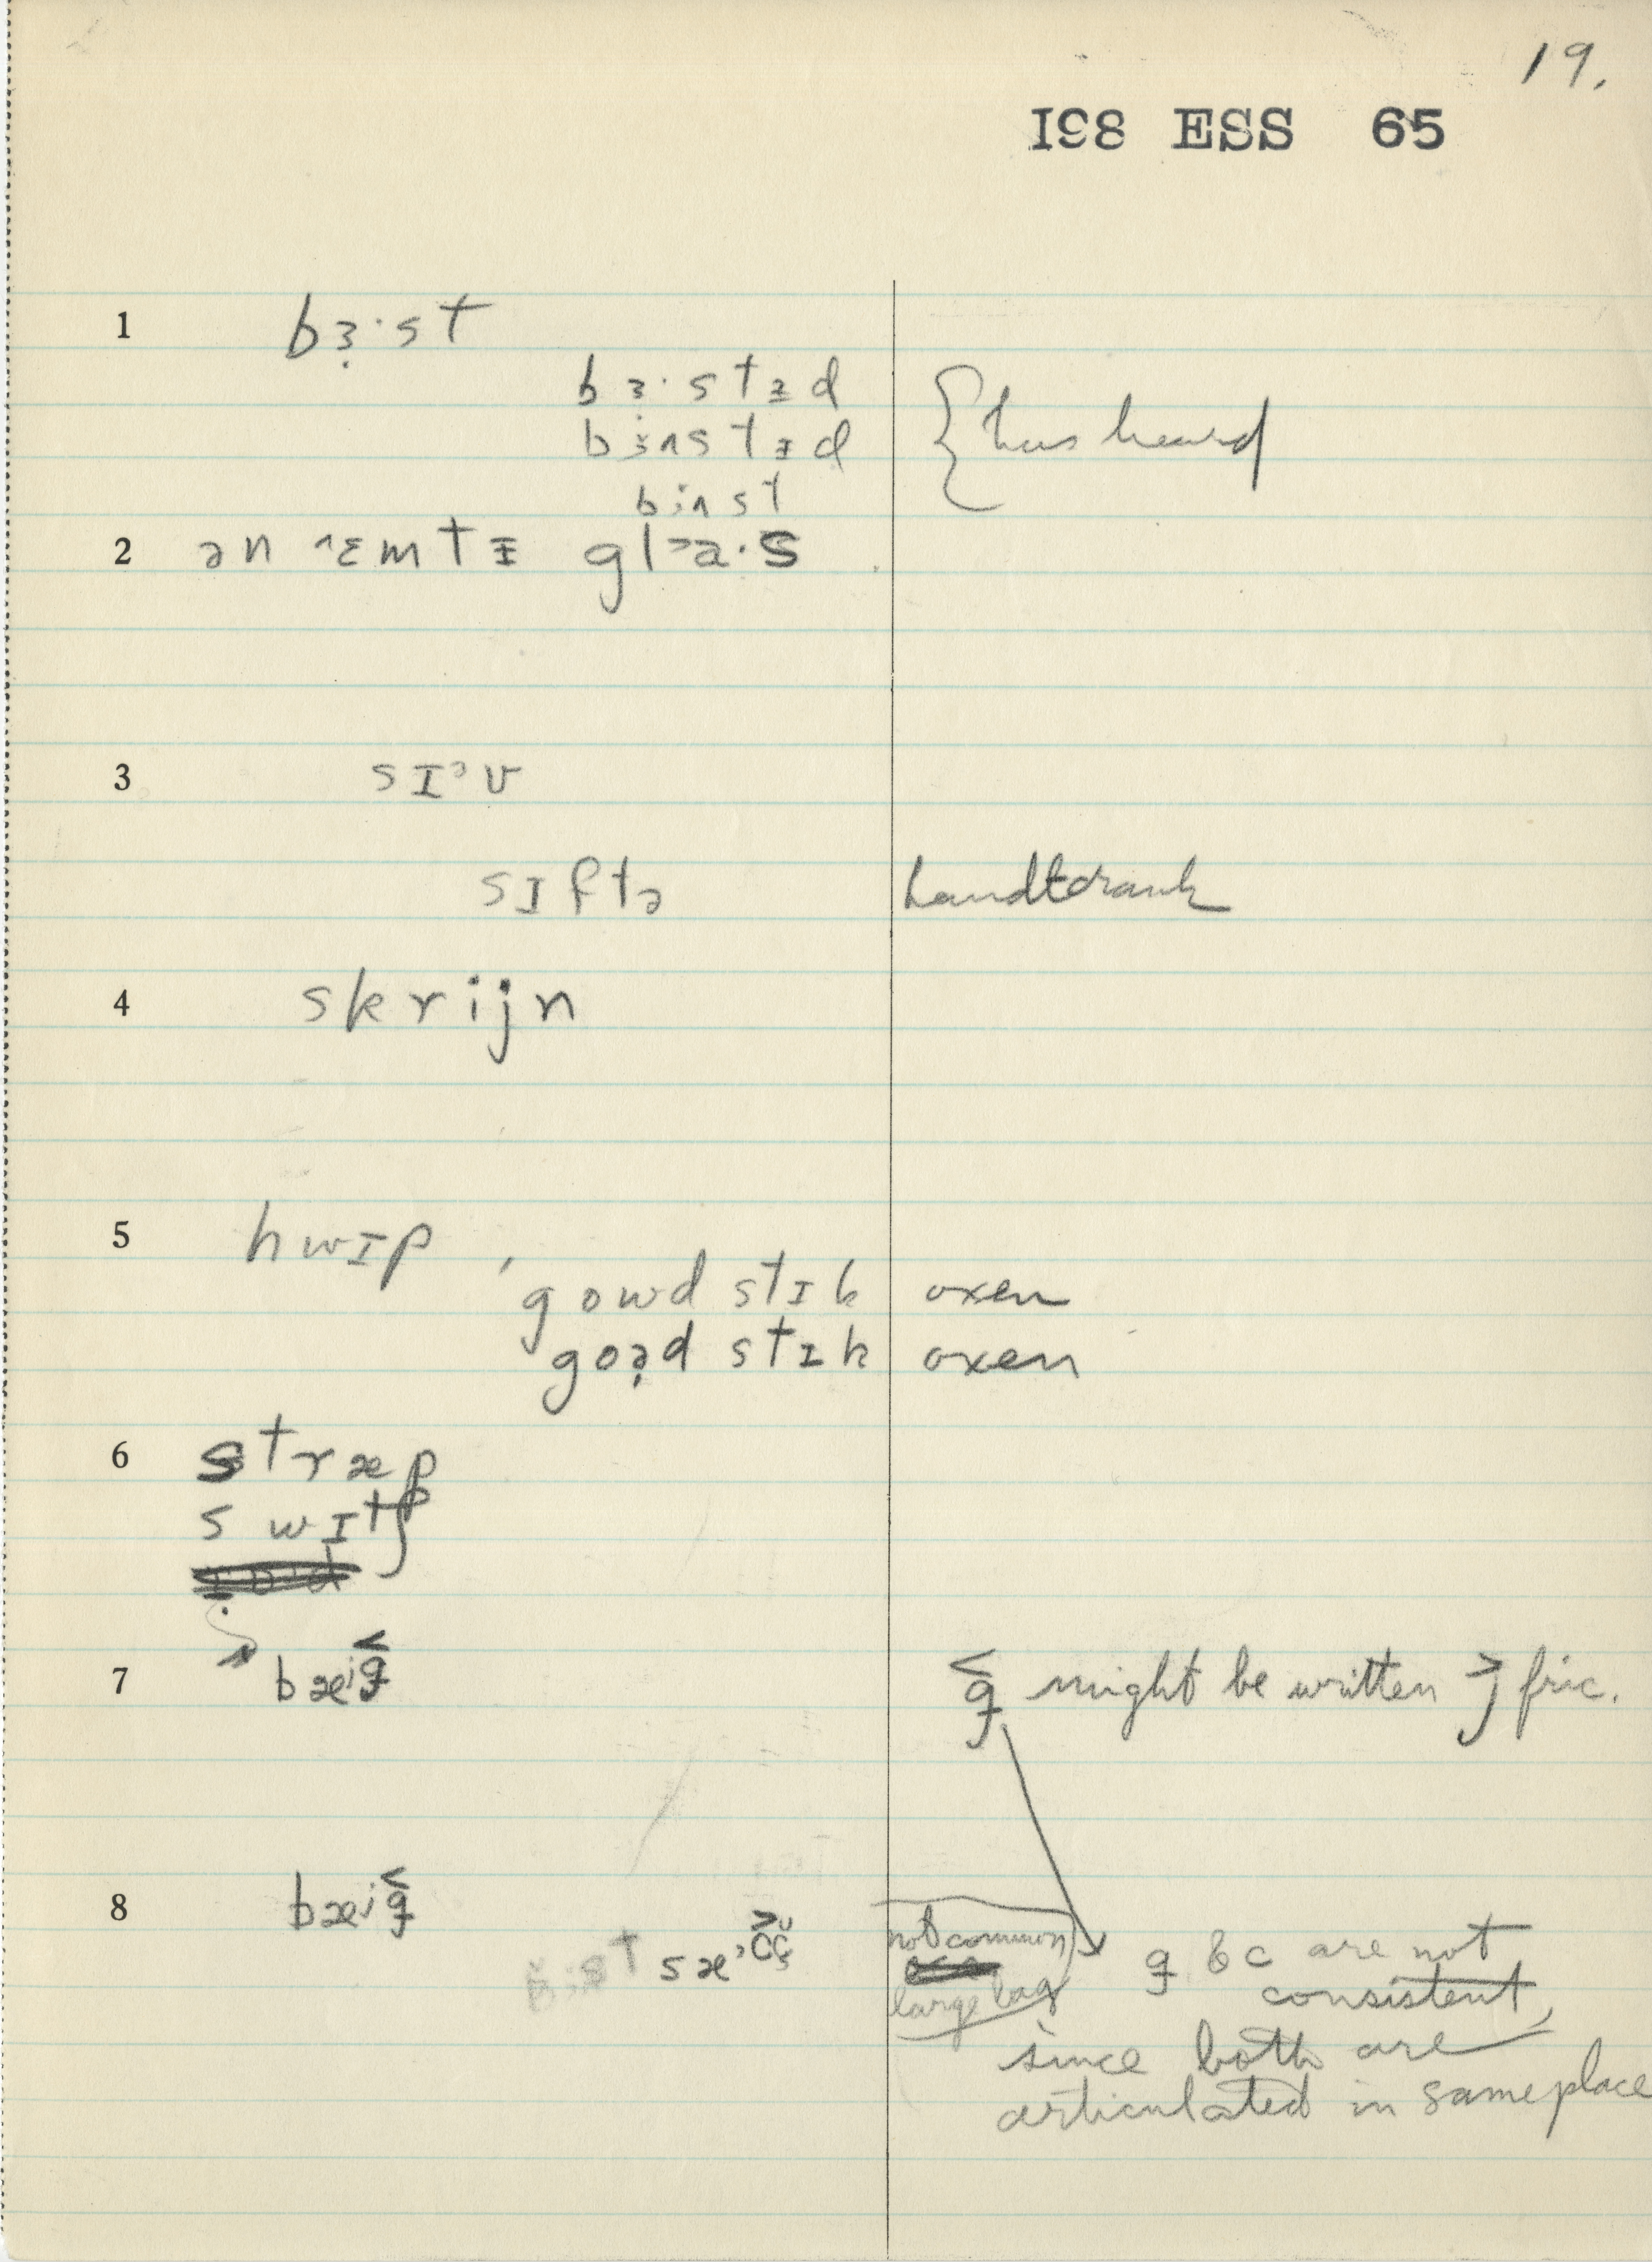 19.
I98 ESS 65
1 bɜ̣·st
bɜ·stɪd
bɜʌstɪd { has heard
bɜʌst
2 ən ˄ɛmtɪ gl˃a·s
3 sɪᵊv
sɪftə handtcrank
4 skrijn
5 hwɪp,
gowd stɪk oxen
goə̣d stɪk oxen
6 stræp
swɪtʃ
7 bæⁱg̟ g̟ might be written ɟ fric.
8 bæⁱg̟
sæ not common
large bag
g & c are not
consistent,
since both are
articulated in same place